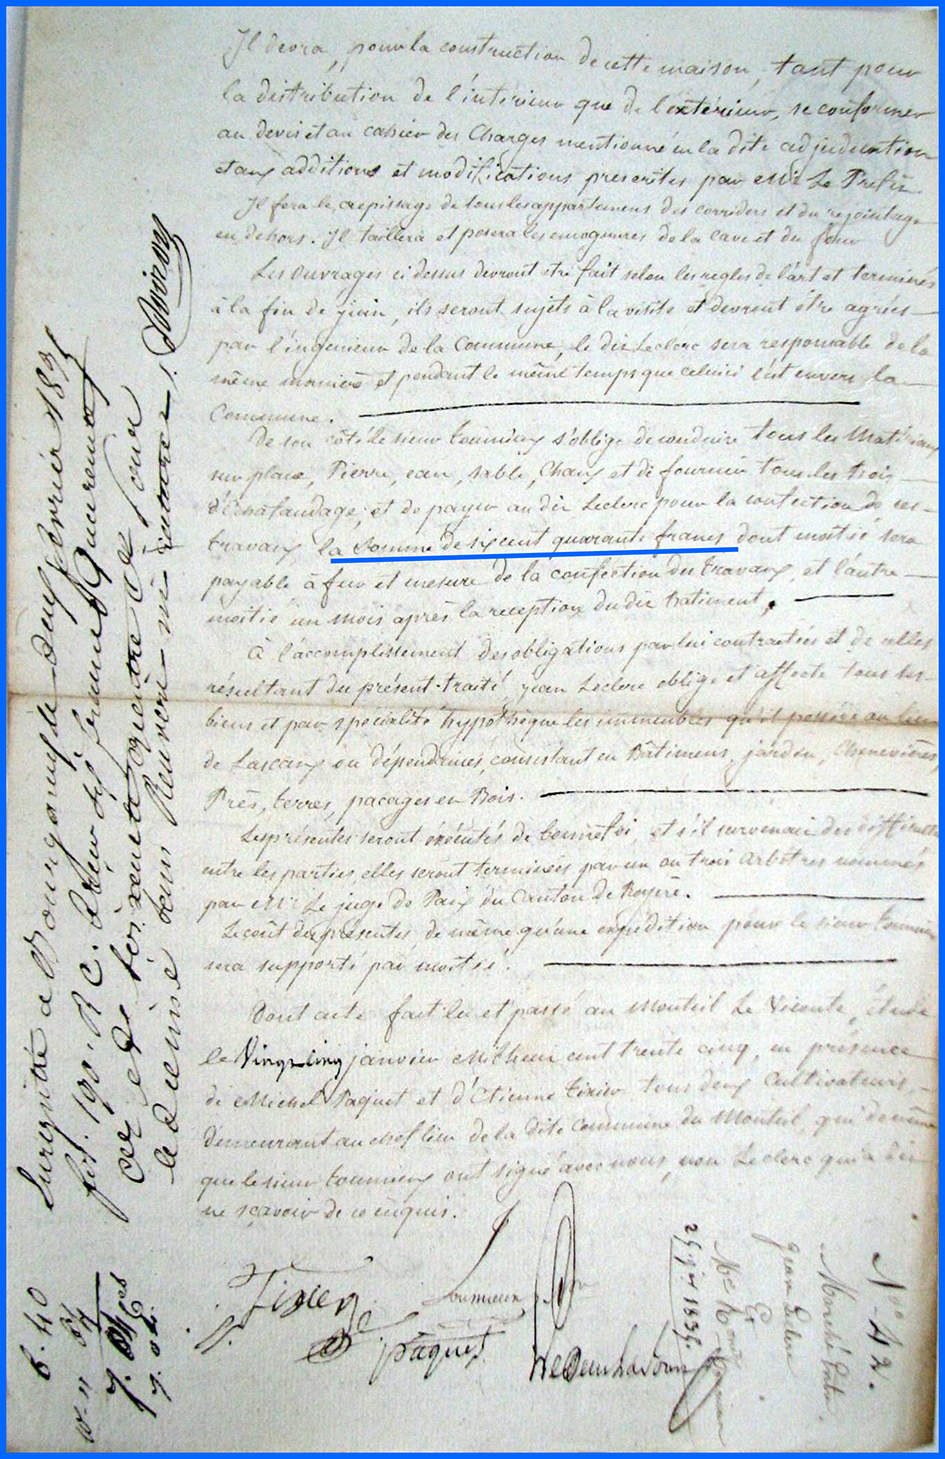 Il devra, pour la construction de cette maison, tant pour
la distribution de l'intérieur que de l'extérieur, se conformer
au devis et au cahier des Charges mentionné en la dite adjudication
et aux additions et modifications prescrites par Mr Le Préfet.
Il fera le crepissage de tous les appartemens des corridors et du rejointage
en dehors. Il taillera et posera les encognures de la cave et du four
Les Ouvrages ci dessus devront etre fait selon les regles de l'art et terminés
à la fin de juin, ils seront sujets à la visite et devront être agréés
par l'ingénieur de la Commune, le dit Leclerc sera responsable de la
même manière et pendant le même temps que celui-ci l'est envers la
Commune.
De son côté le sieur tournieux s'oblige de conduire tous les Matériaux
sur place, Pierre, eau, sable, Chaux et de fournir tous les bois
d'échafaudage, et de payer au dit Leclerc pour la confection de ces
travaux la somme de six cent quarante francs dont moitié sera
payable à fur et mesure de la confection des travaux et l'autre
moitié un mois après la reception du dit batiment.
À l'accomplissement des obligations par lui contractées et de celles
résultant du présent traité, jean Leclerc oblige et affecte tous ses
biens et par spécialité hypothèque les immeubles qu'il possède au lieu
de Lascaux ou dépendances, consistant en Bâtimens, jardin, Chenevières,
Près, terres, pacages et Bois.
Les présentes seront éxécutés de bonne foi, et s'il survenait des difficultés
entre les parties elles seront terminées par un ou trois arbitres nommés
par Mr Le juge de Paix du Canton de Royère.
Le coût des présentes, de même qu'une expédition pour le sieur tournieux
sera supporté par moitié.
Dont acte fait lu et passé au Monteil Le Vicomte, étude
le Vingt cinq janvier Mil huit cent trente cinq, en présence
de Michel Paquet et d'Etienne tixier tous deux Cultivateurs,
demeurant au chef lieu de la dite Commune du Monteil, qui de même
que le sieur tournieux ont signé avec nous, non Leclerc qui a dit
ne sçavoir de ce enquis.
Tixier Tournieux
paquet
Enregistré à Bourganeuf le deux février 1835
fol. 190. R C. Reçu six francs quarante
et dixième sans Renvoi ni rature.
6. 40
N° 42.
Marché
jean Leclerc
Et
25 jer 1835.